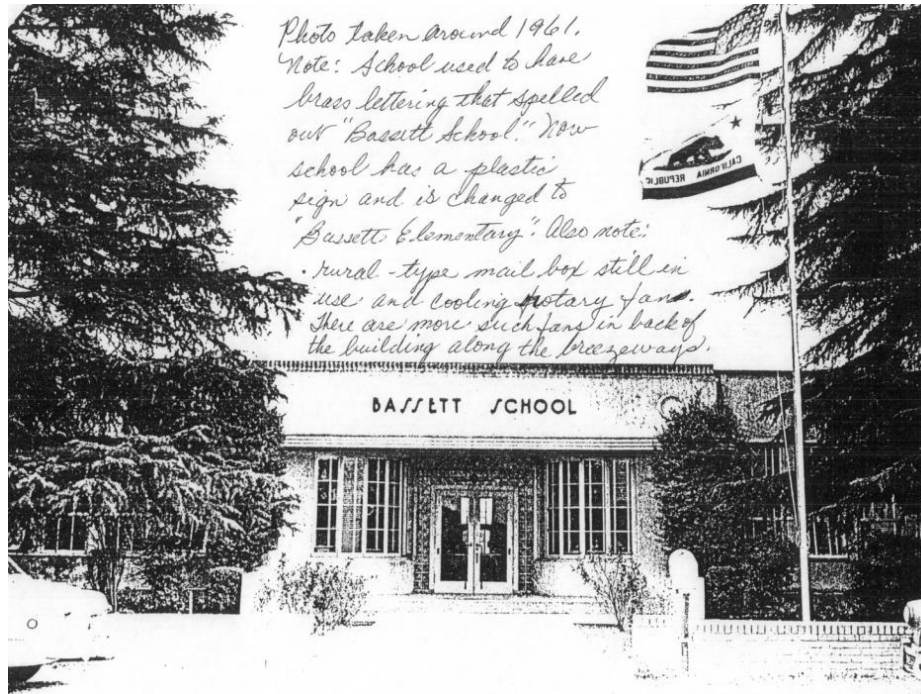 Photo taken around 1961.
Note: School used to have
brass lettering that spelled
out "Bassett School." Now
school has a plastic
sign and is changed to
"Bassett Elementary". Also note:
· rural-type mail box still in
use and cooling rotary fans.
There are more such fans in back of
the building along the breezeways.
CALIFORNIA REPUBLIC
BASSETT SCHOOL